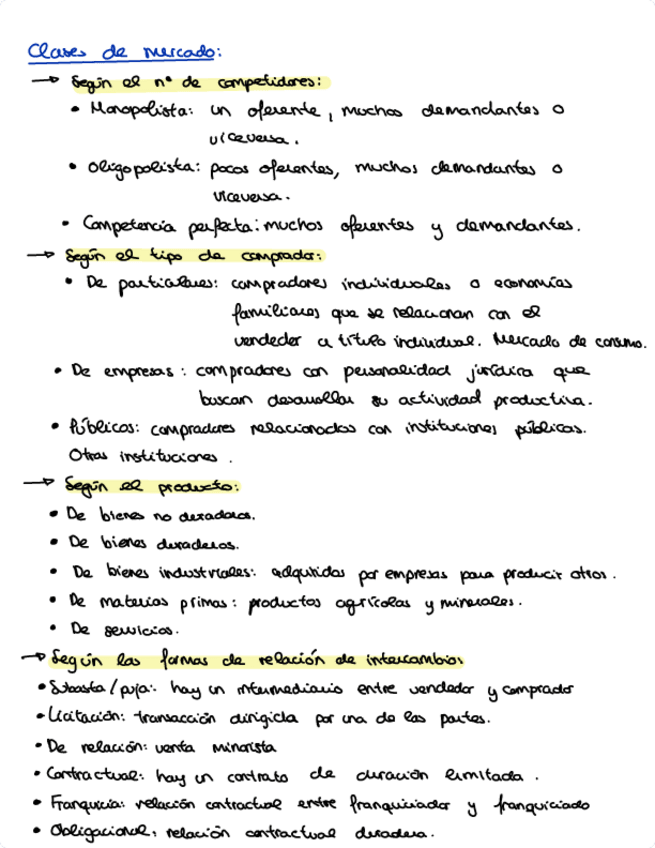 Clases de mercado:
→ Según el nº de competidores:
• Monopolista: un oferente, muchos demandantes o
viceversa.
• Oligopolista: pocos oferentes, muchos demandantes o
viceversa.
• Competencia perfecta: muchos oferentes y demandantes.
→ Según el tipo de comprador:
• De particulares: compradores individuales o economías
familiares que se relacionan con el
vendedor a título individual. Mercado de consumo.
• De empresas: compradores con personalidad jurídica que
buscan desarrollar su actividad productiva.
• Públicos: compradores relacionados con instituciones públicas.
Otras instituciones.
→ Según el producto:
• De bienes no duraderos.
• De bienes duraderos.
• De bienes industriales: adquiridos por empresas para producir otros.
• De materias primas: productos agrícolas y minerales.
• De servicios.
→ Según las formas de relación de intercambio:
• Subasta/puja: hay un intermediario entre vendedor y comprador
• Licitación: transacción dirigida por una de las partes.
• De relación: venta minorista
• Contractual: hay un contrato de duración limitada.
• Franquicia: relación contractual entre franquiciador y franquiciado
• Obligacional: relación contractual duradera.